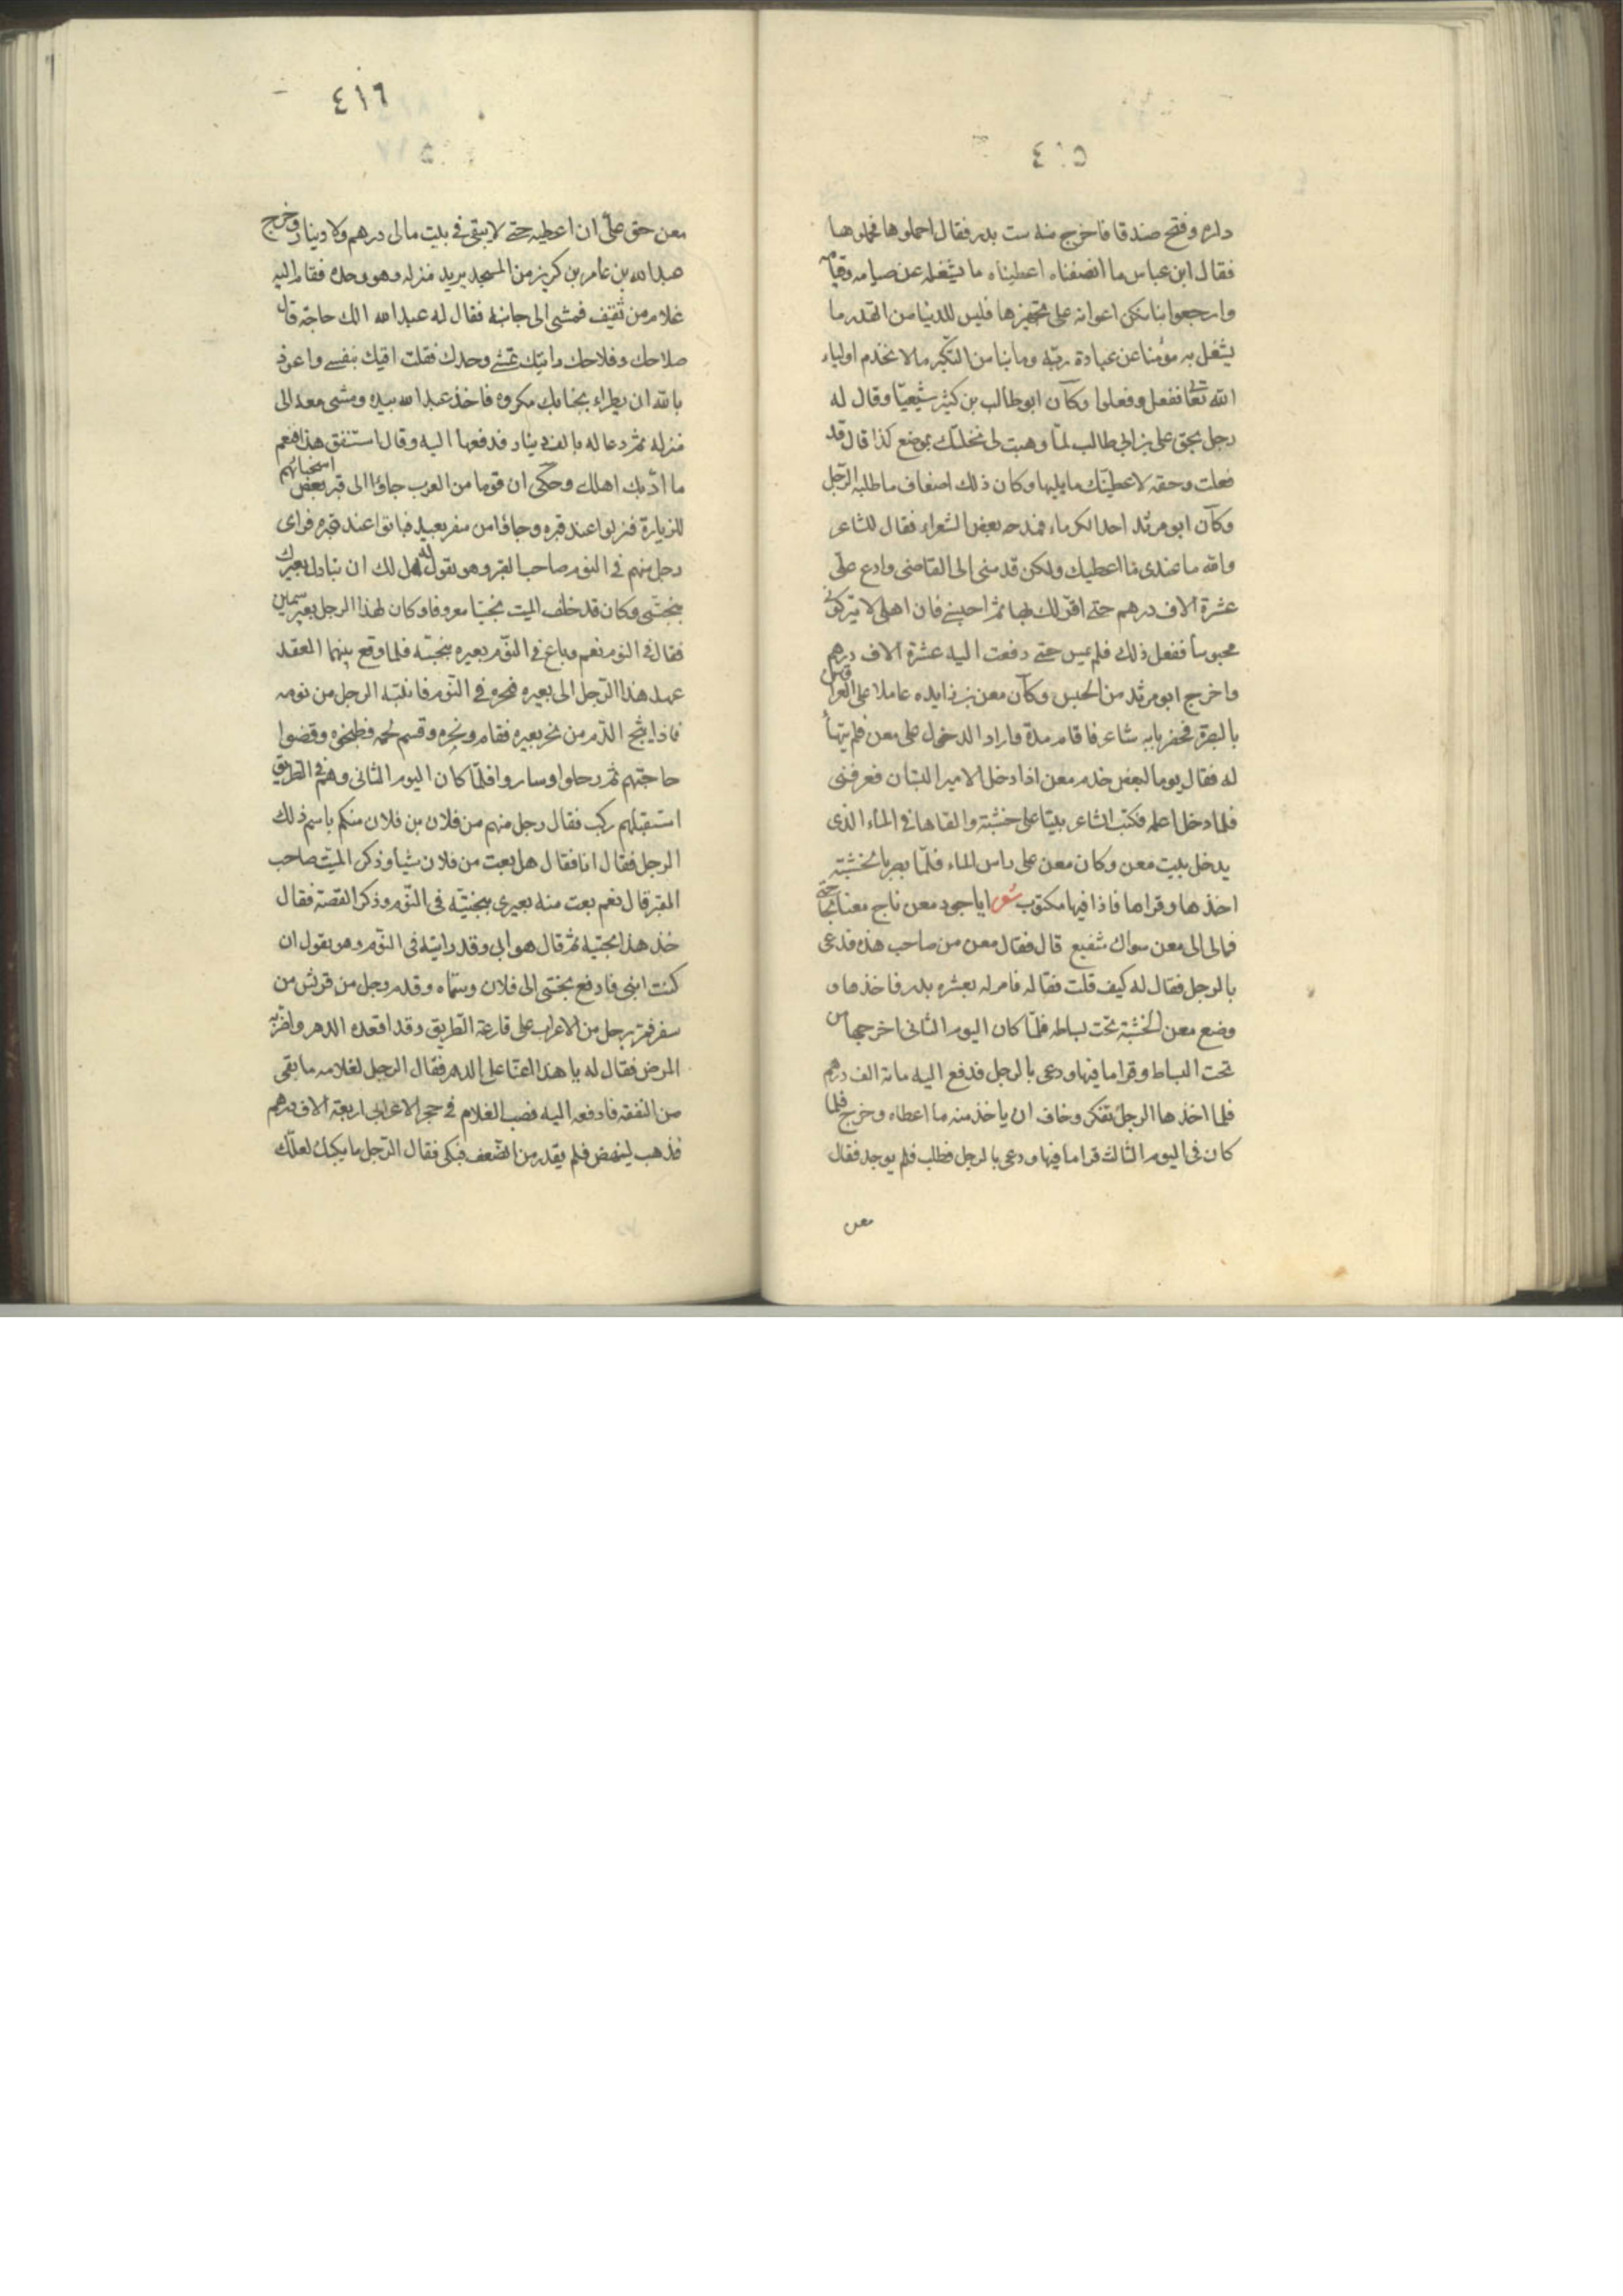 ٤١٥
داره وفتح صندقا فاخرج منه ست بدر فقال احملوها فحملوها
فقال ابن عباس ما انصفناه اعطيناه ما يشغله عن صيامه وقيامه
وارجعوا بنا نكن اعوانه على تجهيزها فليس للدنيا من القدر ما
يشغل به مؤمنا عن عبادة ربّه وما بنا من التكبّر ما لا نخدم اولياء
الله تعالى ففعل وفعلوا وكان ابو طالب بن كثير شيعيّا وقال له
رجل بحق على بن ابى طالب لمّا وهبت لى نخلتك بموضع كذا قال قد
فعلت وحقه لاعطينّك ما يليها وكان ذلك اضعاف ما طلبه الرّجل
وكان ابو مرثد احد الكرماء فمدحه بعض الشعراء فقال للشاعر
والله ما عندى ما اعطيك ولكن قدمنى الى القاضى وادع علىّ
عشرة الاف درهم حتى اقر لك بها ثم احبسنى فان اهلى لا يتركونى
محبوسا ففعل ذلك فلم يمس حتى دفعت اليه عشرة الاف درهم
واخرج ابو مرثد من الحبس وكان معن بن زايده عاملا على العراقين
بالبصرة فحضر بابه شاعر فاقام مدة واراد الدخول على معن فلم يتهيأ
له فقال يوما لبعض خدم معن اذا دخل الامير البستان فعرفنى
فلما دخل اعلمه فكتب الشاعر بيتا على خشبة والقاها فى الماء الذى
يدخل بيت معن وكان معن على راس الماء فلمّا بصر بالخشبة
اخذها وقراها فاذا فيها مكتوب شعر ايا جود معن ناج معنا بحاجتى
فمالى الى معن سواك شفيع قال فقال معن من صاحب هذه فدعى
بالرجل فقال له كيف قلت فقاله فامر له بعشره بدر فاخذها و
وضع معن الخشبة تحت بساطه فلمّا كان اليوم الثانى اخرجها من
تحت البساط وقرا ما فيها ودعى بالرجل فدفع اليه مائة الف درهم
فلما اخذها الرجل تفكر وخاف ان ياخذ منه ما اعطاه وخرج فلما
كان فى اليوم الثالث قرا ما فيها ودعى بالرجل فطلب فلم يوجد فقال
معن
٤١٦
معن حق علىّ ان اعطيه حتى لا يبقى فى بيت مالى درهم ولا دينار وخرج
عبد الله بن عامر بن كريز من المسجد يريد منزله وهو وحده فقام اليه
غلام من ثقيف فمشى الى جانبه فقال له عبد الله الك حاجة قال
صلاحك وفلاحك رايتك تمشى وحدك فقلت اقيك بنفسى واعوذ
بالله ان يطراء بجنابك مكروه فاخذ عبد الله بيده ومشى معه الى
منزله ثم دعا له بالف دينار فدفعها اليه وقال استنفق هذا فنعم
ما ادّبك اهلك وحكى ان قوما من العرب جاؤا الى قبر بعض اسخيائهم
للزيارة فنزلوا عند قبره وجاؤا من سفر بعيد فباتوا عند قبره فراى
رجل منهم فى النوم صاحب القبر وهو يقول له هل لك ان تبادل بعيرك
بنجيبى وكان قد خلف الميت نجيبا معروفا وكان لهذا الرجل بعير سمين
فقال فى النوم نعم وباع فى النّوم بعيره بنجيبه فلما وقع بينهما العقد
عمد هذا الرّجل الى بعيره فنحره فى النّوم فانتبه الرجل من نومه
فاذا يثج الدّم من نحر بعيره فقام ونحره وقسم لحمه فطبخوه وقضوا
حاجتهم ثم رحلوا وساروا فلمّا كان اليوم الثانى وهم فى الطريق
استقبلهم ركب فقال رجل منهم من فلان بن فلان منكم باسم ذلك
الرجل فقال انا فقال هل بعت من فلان شيا وذكر الميّت صاحب
القبر قال نعم بعت منه بعيرى بنجيبه فى النّوم وذكر القصة فقال
خذ هذا نجيبه ثم قال هو ابى وقد رايته فى النّوم وهو يقول ان
كنت ابنى فادفع نجيبى الى فلان وسمّاه وقدم رجل من قريش من
سفر فمرّ برجل من الاعراب على قارعة الطريق وقد اقعده الدهر واضرّ به
المرض فقال له يا هذا اعنّا على الدهر فقال الرجل لغلامه ما بقى
من النفقه فادفعه اليه فصب الغلام فى حجر الاعرابى اربعة الاف درهم
فذهب لينهض فلم يقدر من الضّعف فبكى فقال الرّجل ما يبكيك لعلّك